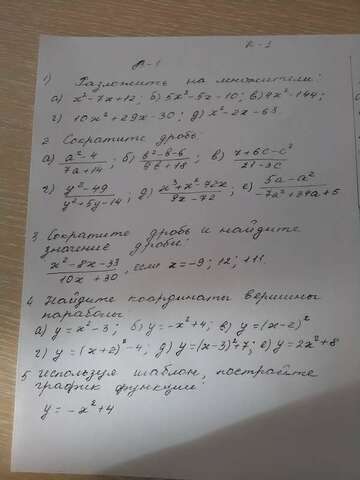 К-1
В-1
1) Разложить на множители:
а) x²-7x+12; б) 5x²-5x-10; в) 4x²-144;
г) 10x²+29x-30; д) x²-2x-63
2 Сократите дробь:
а) (a²-4)/(7a+14); б) (b²-b-6)/(9b+18); в) (7+6c-c²)/(21-3c)
г) (y²-49)/(y²+5y-14); д) (x³+x²-72x)/(9x-72); е) (5a-a²)/(-7a²+34a+5)
3. Сократите дробь и найдите
значение дроби:
(x²-8x-33)/(10x+30), если x=-9; 12; +11.
4 Найдите координаты вершины
параболы
а) y=x²-3; б) y=-x²+4; в) y=(x-2)²
г) y=(x+2)²-4; д) y=(x-3)²+7; е) y=2x²+8
5 Используя шаблон, постройте
график функции:
y=-x²+4